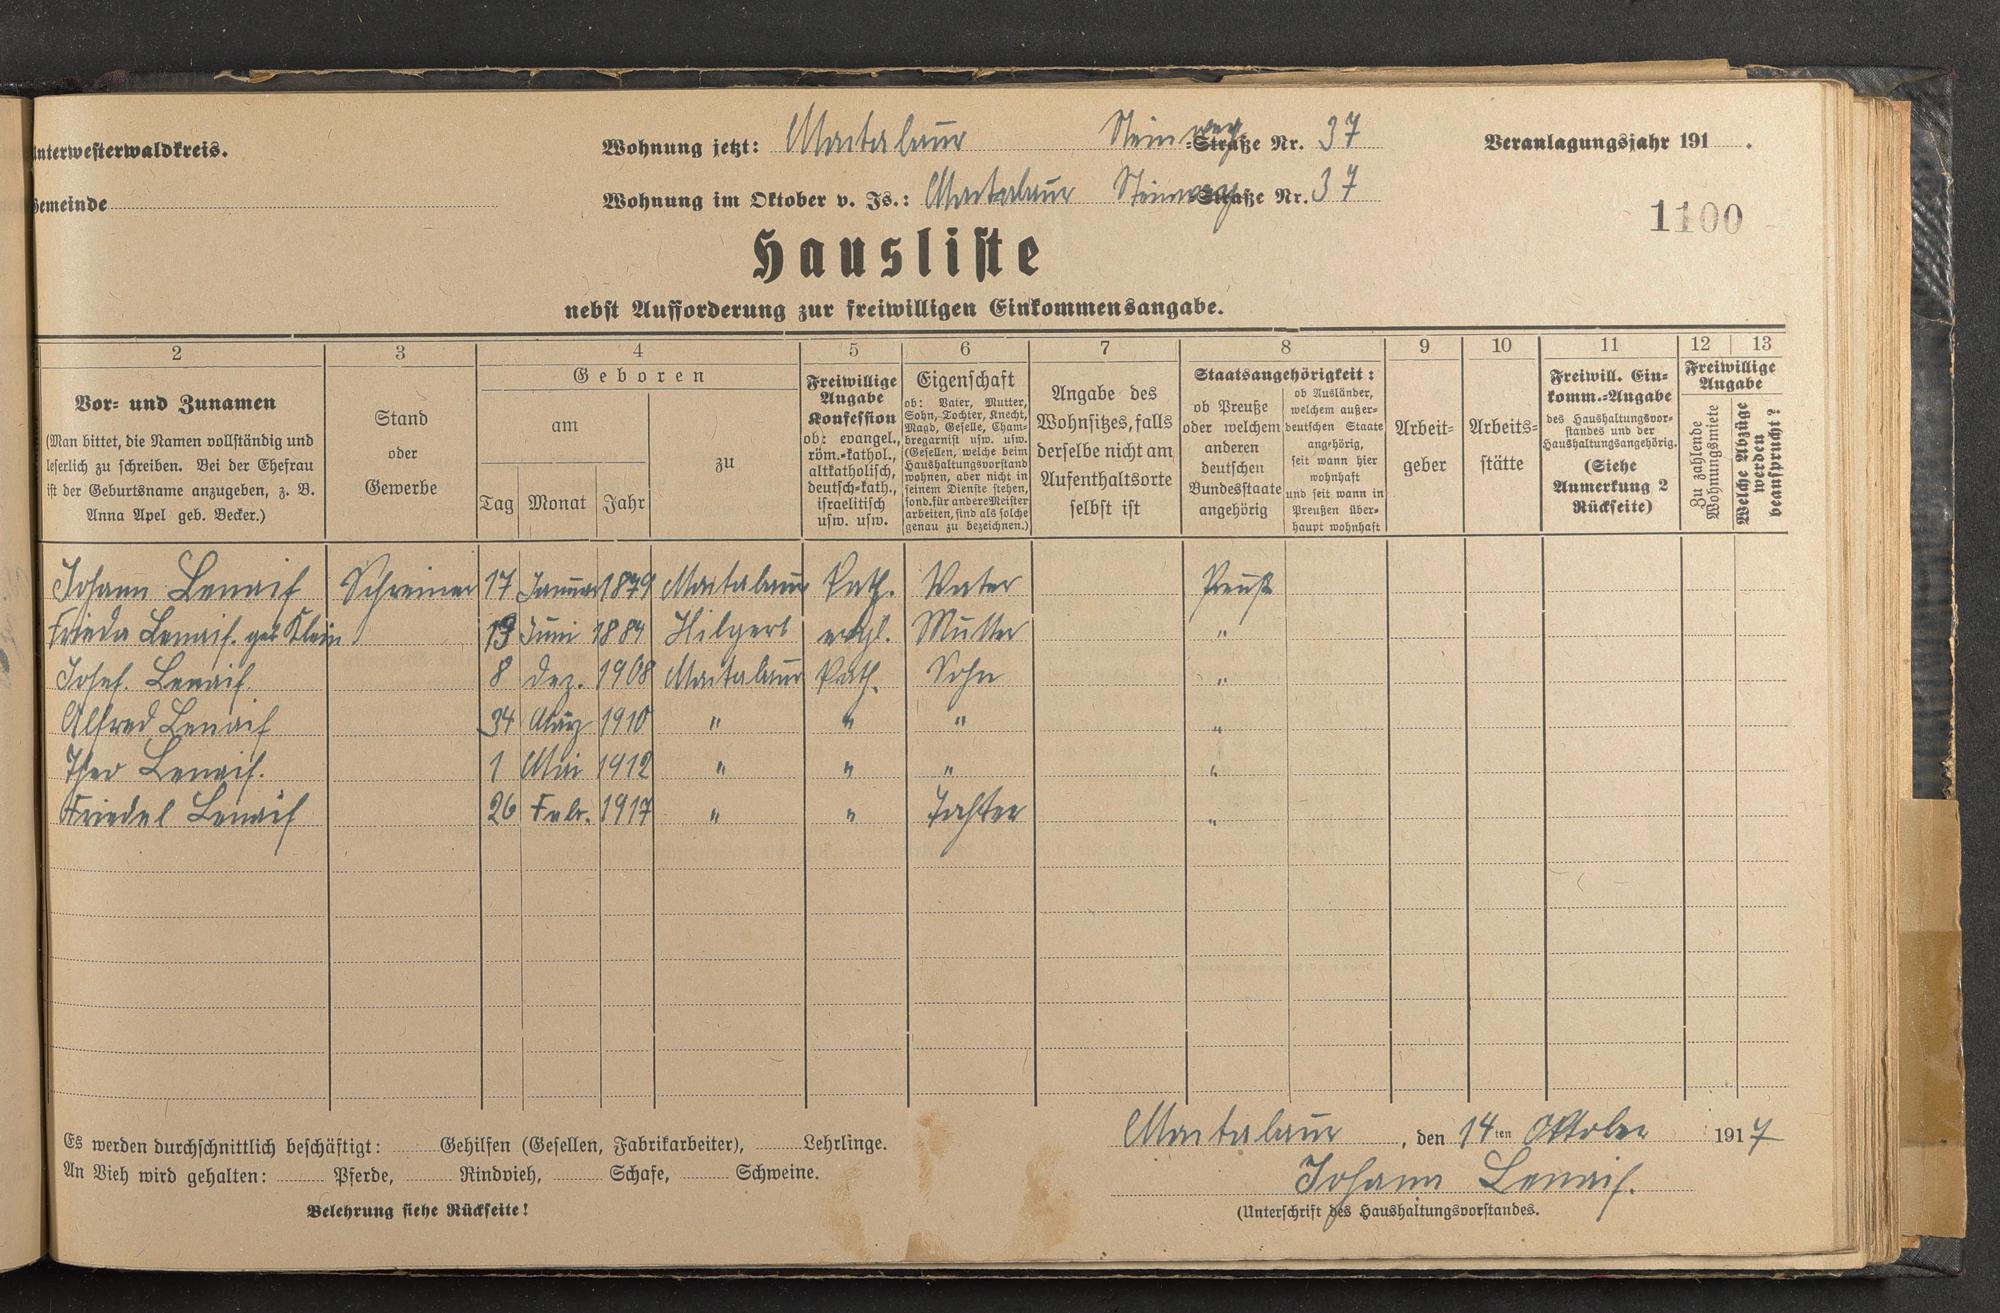 Unterwesterwaldkreis.
Wohnung jetzt: Montabaur Steinweg -Straße Nr. 37
Veranlagungsjahr 191 .
Gemeinde
Wohnung im Oktober v. Js.: Montabaur Steinweg -Straße Nr. 37
1100
Hausliste
nebst Aufforderung zur freiwilligen Einkommensangabe.
2 3 4 5 6 7 8 9 10 11 12 13
Vor- und Zunamen
(Man bittet, die Namen vollständig und
leserlich zu schreiben. Bei der Ehefrau
ist der Geburtsname anzugeben, z. B.
Anna Apel geb. Becker.)
Stand
oder
Gewerbe
Geboren
am
Tag Monat Jahr
zu
Freiwillige
Angabe
Konfession
ob: evangel.,
röm.-kathol.,
altkatholisch,
deutsch-kath.,
israelitisch
usw. usw.
Eigenschaft
ob: Vater, Mutter,
Sohn, Tochter, Knecht,
Magd, Geselle, Cham-
bregarnist usw. usw.
(Gesellen, welche beim
Haushaltungsvorstand
wohnen, aber nicht in
seinem Dienste stehen,
sond. für andere Meister
arbeiten, sind als solche
genau zu bezeichnen.)
Angabe des
Wohnsitzes, falls
derselbe nicht am
Aufenthaltsorte
selbst ist
Staatsangehörigkeit:
ob Preuße
oder welchem
anderen
deutschen
Bundesstaate
angehörig
ob Ausländer,
welchem außer-
deutschen Staate
angehörig,
seit wann hier
wohnhaft
und seit wann in
Preußen über-
haupt wohnhaft
Arbeit-
geber
Arbeits-
stätte
Freiwill. Ein-
komm.-Angabe
des Haushaltungsvor-
standes und der
Haushaltungsangehörig.
(Siehe
Anmerkung 2
Rückseite)
Freiwillige
Angabe
Zu zahlende
Wohnungsmiete
Welche Abzüge
werden
beansprucht?
Johann Schreiner 17 Januar 1879 Montabaur Kath. Vater Preuß
Frieda geb Klein 13 Juni 1884 Hilgert evgl. Mutter "
Josef 8 Dez. 1908 Montabaur Kath. Sohn "
Alfred März 1910 " " " "
Theo 1 Mai 1912 " " " "
Friedel 26 Febr. 1917 " " Tochter "
Es werden durchschnittlich beschäftigt: Gehilfen (Gesellen, Fabrikarbeiter), Lehrlinge.
An Vieh wird gehalten: Pferde, Rindvieh, Schafe, Schweine.
Belehrung siehe Rückseite!
Montabaur, den 14ten Oktober 1917
Johann
(Unterschrift des Haushaltungsvorstandes.